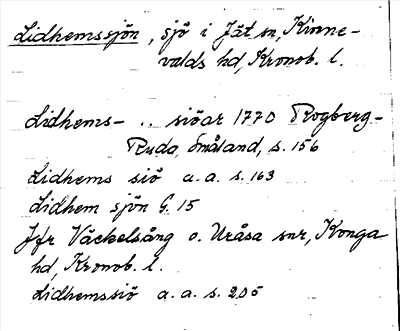 Lidhemssjön, sjö i Jät sn, Kinne-
valds hd, Kronob. l.
Lidhems- .. siöar 1770 Rogberg-
Ruda, Småland, s. 156
Lidhems siö a. a. s. 163
Lidhem sjön G 15
Jfr Väckelsång o. Uråsa snr, Konga
hd, Kronob. l.
Lidhemssiö a. a. s. 205